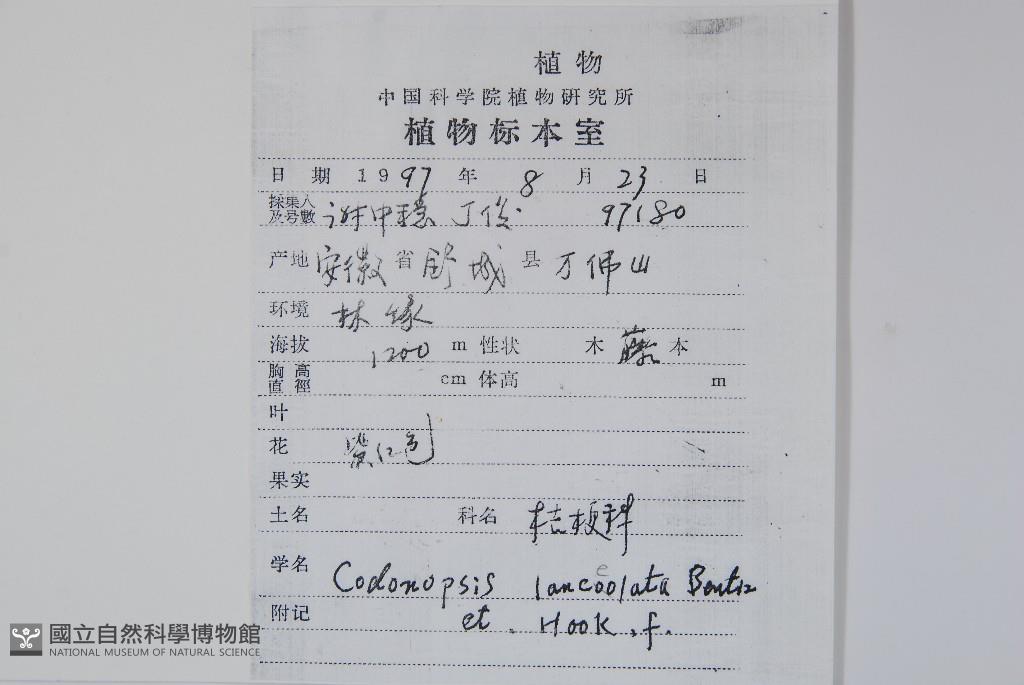 植物
中国科学院植物研究所
植物标本室
日 期 1997 年 8 月 23 日
採集人及号數 谢中稳 丁俊 97180
产地 安徽 省 舒城 县 万佛山
环境 林缘
海拔 1200 m 性状 木 藤 本
胸高直徑 cm 体高 m
叶
花 紫红色
果实
土名 科名 桔梗科
学名 Codonopsis lanceolata Benth
附记 et. Hook.f.
國立自然科學博物館
NATIONAL MUSEUM OF NATURAL SCIENCE